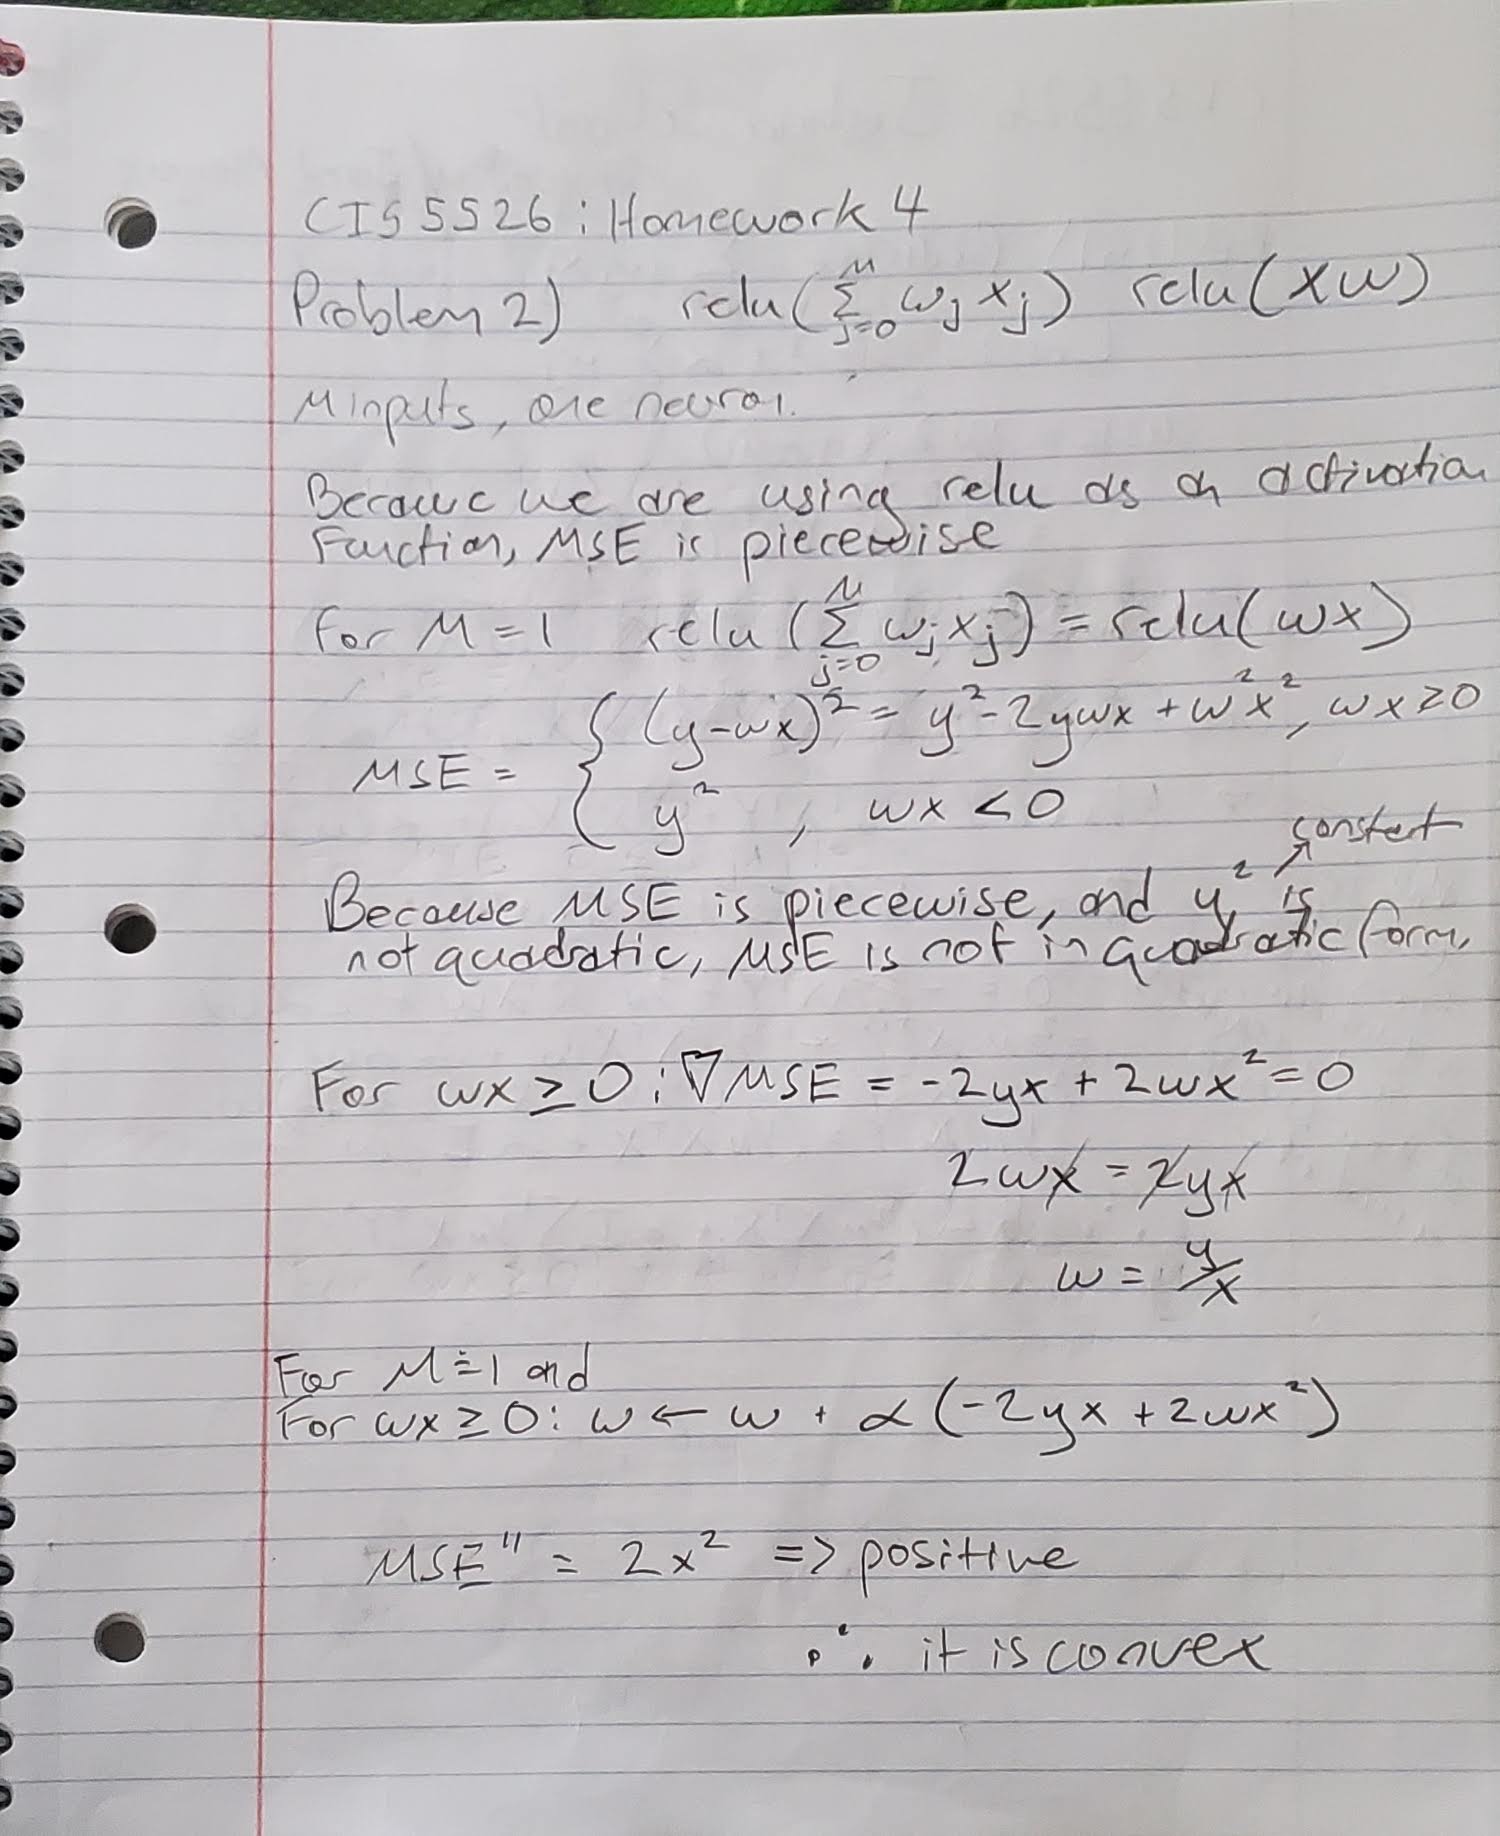 CIS 5526 : Homework 4
Problem 2) relu(∑_{j=0}^{M} w_j x_j) relu(XW)
M inputs, one neuron.
Because we are using relu as an activation
Function, MSE is piecewise
For M = 1 relu(∑_{j=0}^{M} w_j x_j) = relu(wx)
MSE = { (y-wx)² = y² - 2ywx + w²x², wx ≥ 0
y² , wx < 0
constant
Because MSE is piecewise, and y² is
not quadratic, MSE is not in quadratic form,
For wx ≥ 0 : ∇MSE = -2yx + 2wx² = 0
2wx = 2yx
w = y/x
For M = 1 and
For wx ≥ 0 : w ← w + α(-2yx + 2wx²)
MSE'' = 2x² => positive
∴ it is convex